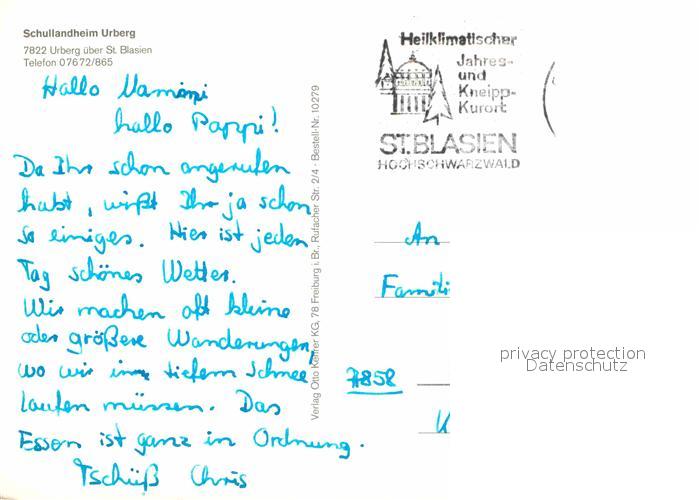 Schullandheim Urberg
7822 Urberg über St. Blasien
Telefon 07672/865
Hallo Mamimi
hallo Pappi!
Da Ihr schon angerufen
habt, wißt Ihr ja schon
so einiges. Hier ist jeden
Tag schönes Wetter.
Wir machen oft kleine
oder größere Wanderungen,
wo wir im tiefem Schnee
laufen müssen. Das
Essen ist ganz in Ordnung.
Tschüß Chris
Verlag Otto Kehrer KG, 78 Freiburg i. Br., Rufacher Str. 2/4 · Bestell-Nr. 10279
Heilklimatischer
Jahres-
und
Kneipp-
Kurort
ST. BLASIEN
HOCHSCHWARZWALD
An
Famili
7858
privacy protection
Datenschutz